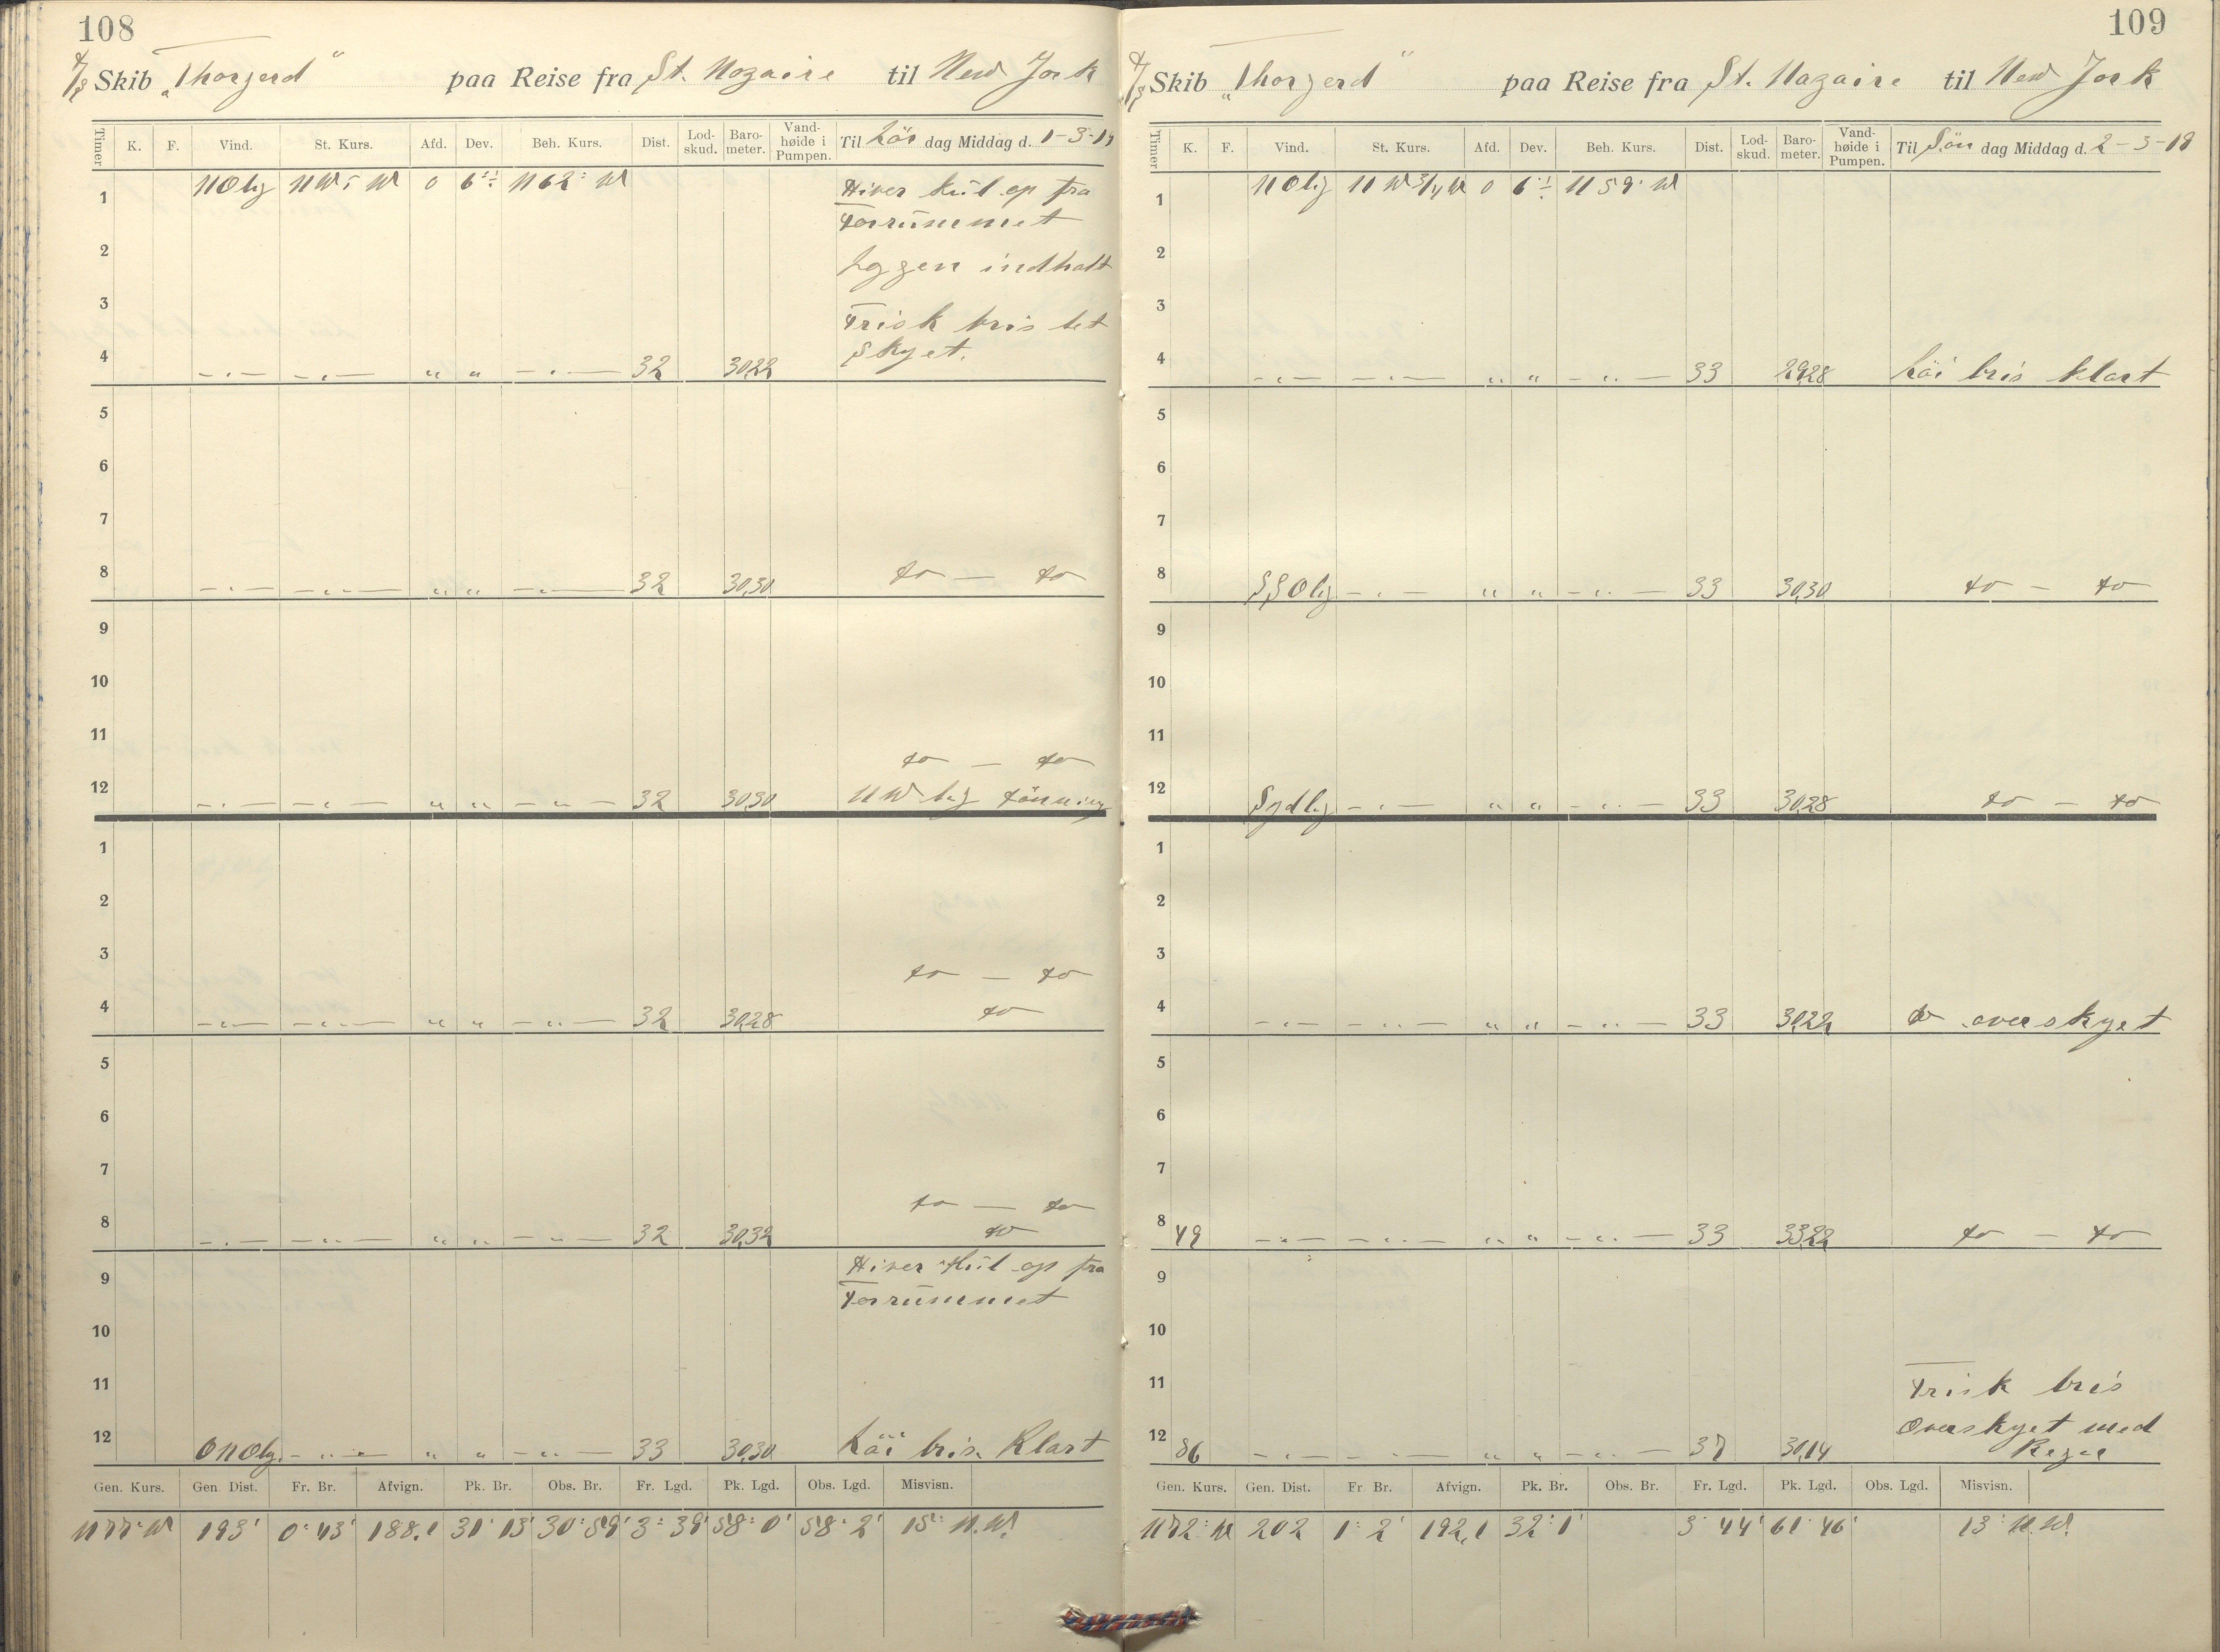 108
D/S Skib „Thorgerd" paa Reise fra St. Nazaire til New York
Timer K. F. Vind. St. Kurs. Afd. Dev. Beh. Kurs. Dist. Lod-skud. Baro-meter. Vand-høide i Pumpen. Til Lör dag Middag d. 1-3-19
1 NOlig 0 N 62° W Hiver kul op fra
Forrummet
2 indhalt
3 Frisk bris let
4 -„- -„- „ „ -„- 32 30,22 Skyet.
5
6
7
8 -„- -„- „ „ -„- 32 30,30 do — do
9
10
11 do — do
12 -„- -„- „ „ -„- 32 30,30 NW lig dönning
1
2
3 do — do
4 -„- -„- „ „ -„- 32 30,28 do
5
6
7 do — do
8 -„- -„- „ „ -„- 32 30,32 do
9 Hiver kul op fra
Forrummet
10
11
12 ONOlig -„- „ „ -„- 33 30,30 Löi bris Klart
Gen. Kurs. Gen. Dist. Fr. Br. Afvign. Pk. Br. Obs. Br. Fr. Lgd. Pk. Lgd. Obs. Lgd. Misvisn.
N 77° W 193' 0° 43' 188,1 31° 13' 30° 59' 3° 39' 58° 0' 58° 2' 15° N.W.
109
D/S Skib „Thorgerd" paa Reise fra St. Nazaire til New York
Timer K. F. Vind. St. Kurs. Afd. Dev. Beh. Kurs. Dist. Lod-skud. Baro-meter. Vand-høide i Pumpen. Til Sön dag Middag d. 2-3-19
1 NOlig NW 3/4 W 0 N 59° W
2
3
4 -„- -„- „ „ -„- 33 29,28 Löi bris klart
5
6
7
8 SSOlig -„- „ „ -„- 33 30,30 do — do
9
10
11
12 Sydlig -„- „ „ -„- 33 30,28 do — do
1
2
3
4 -„- -„- „ „ -„- 33 30,22 do overskyet
5
6
7
8 49 -„- -„- „ „ -„- 33 33,22 do — do
9
10
11 Frisk bris
Overskyet med
12 86 -„- -„- „ „ -„- 37 30,14 Regn
Gen. Kurs. Gen. Dist. Fr. Br. Afvign. Pk. Br. Obs. Br. Fr. Lgd. Pk. Lgd. Obs. Lgd. Misvisn.
N 72° W 202 1° 2' 192,1 32° 1' 3° 44' 61° 46' 13° N.W.